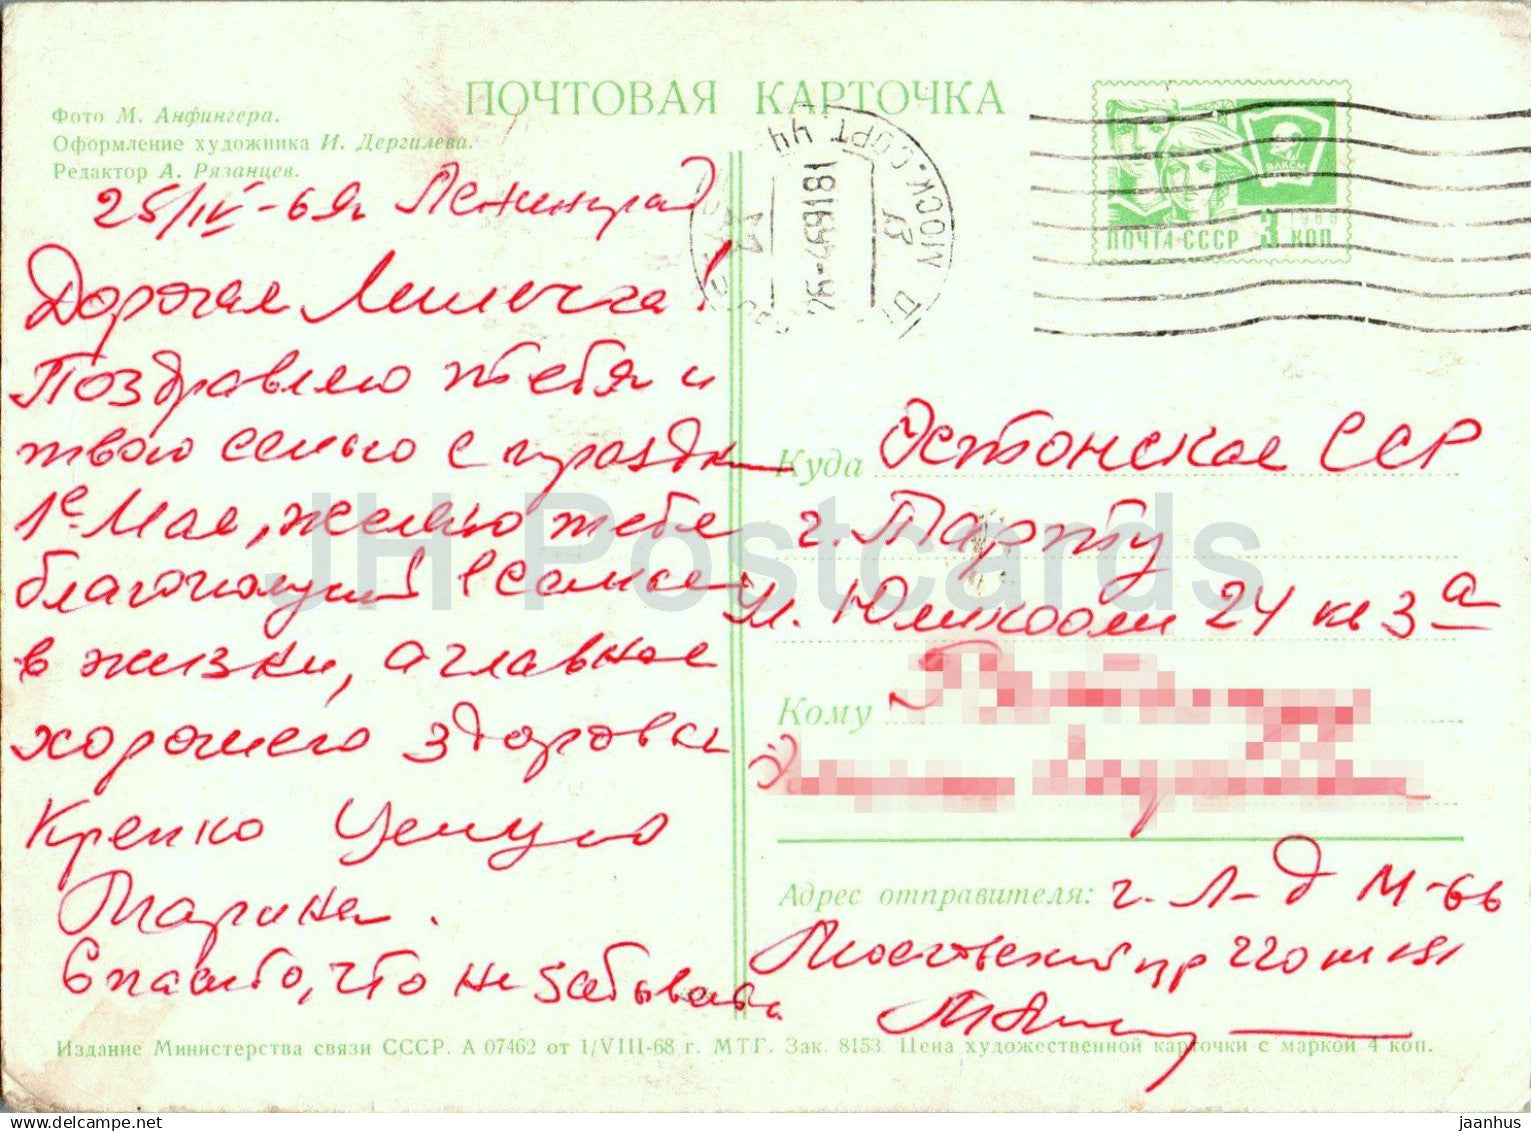 ПОЧТОВАЯ КАРТОЧКА
Фото М. Анфингера.
Оформление художника И. Дергилева.
Редактор А. Рязанцев.
ВЛКСМ
ПОЧТА СССР 3 КОП
МОСК. СОРТ.
25/IV-69г Ленинград
Дорогая Лилечка!
Поздравляю тебя и
твою семью с праздн
1е Мая, желаю тебе
благополучия в семье
в жизни, а главное
хорошего здоровья
Крепко целую
Марина.
Спасибо, что не забывае
Куда Эстонская ССР
г. Тарту
ул. Юликооли 24 кв 3а
Кому
Адрес отправителя: г. Л-д М-66
Московский пр 220
Издание Министерства связи СССР. А 07462 от 1/VIII-68 г. МТГ. Зак. 8153. Цена художественной карточки с маркой 4 коп.
JH Postcards
jaanhus